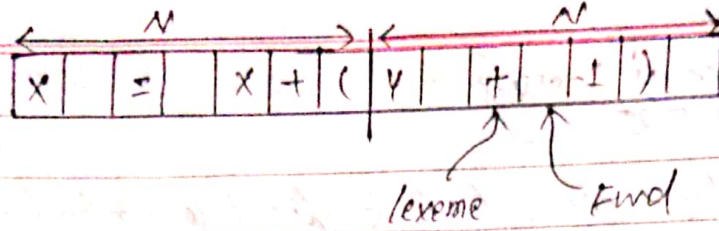 N N
X = X + ( Y + 1 )
lexeme Fwd